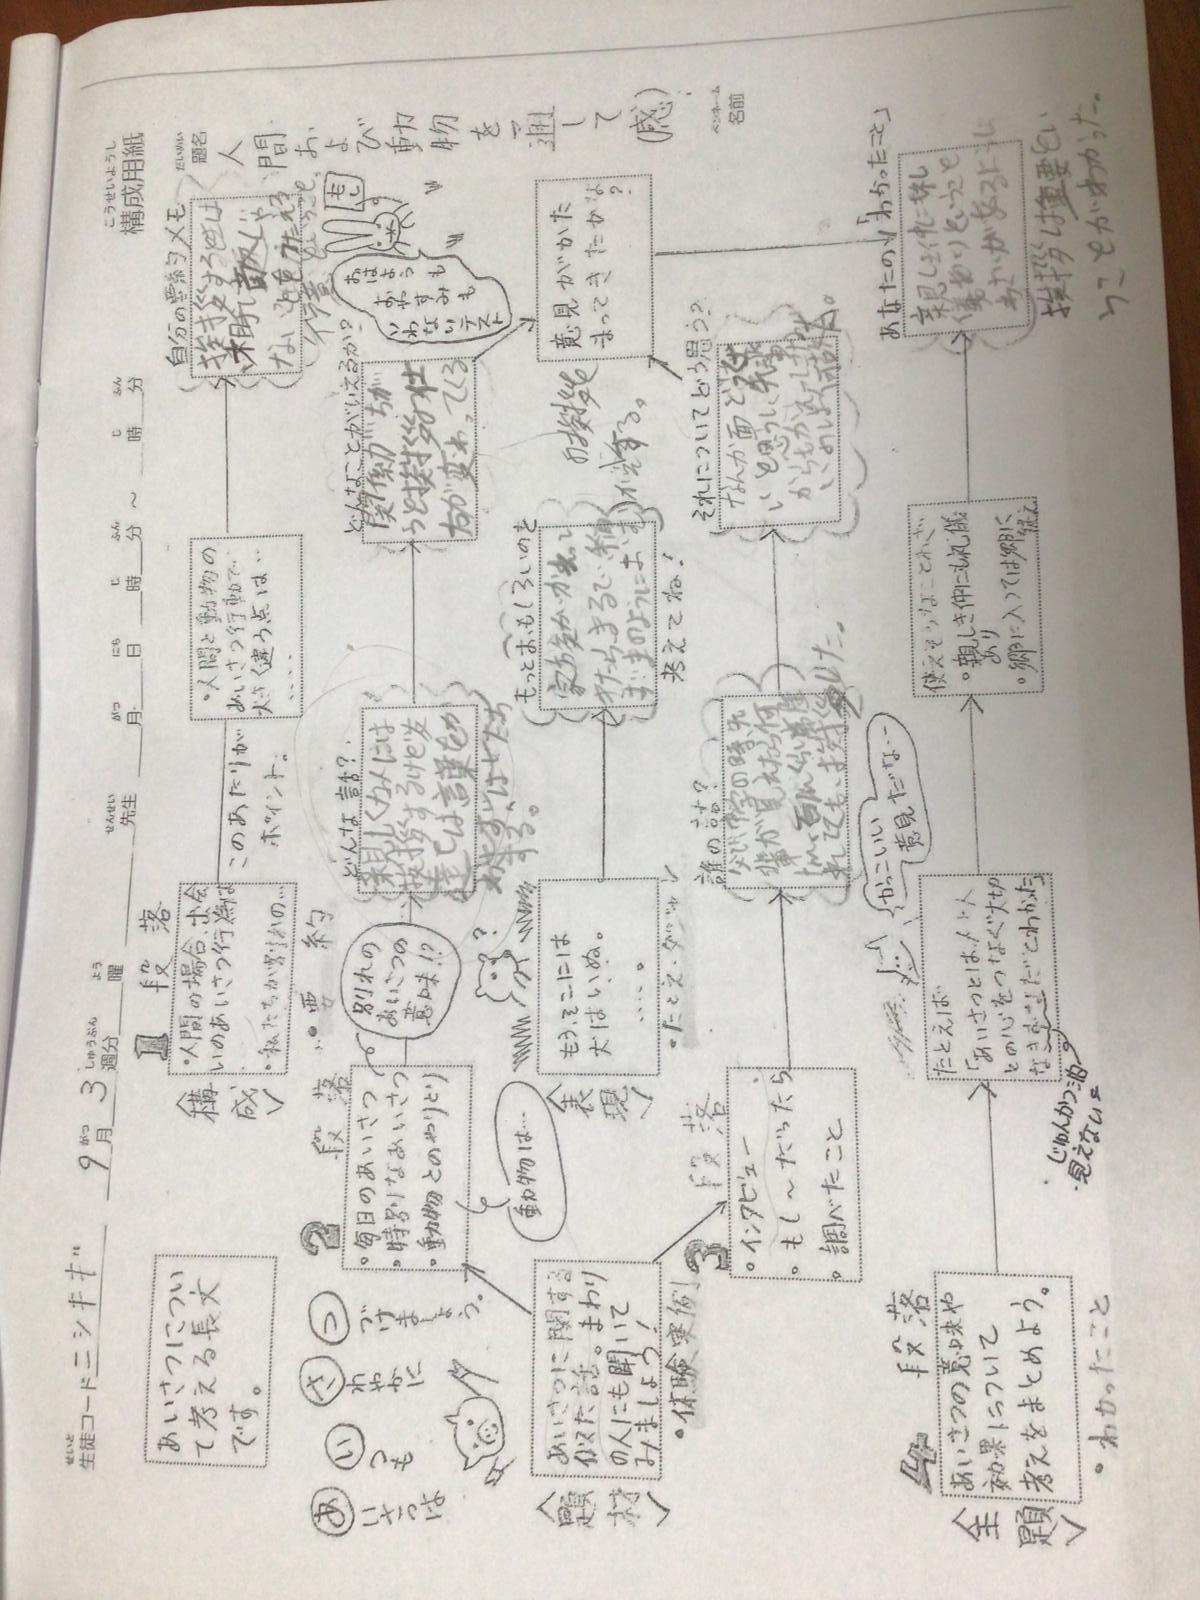 構成用紙
こうせいようし
生徒コード ニシキギ 9月3週分 曜 先生 月 日 時 分 ～ 時 分
題名
人間および動物を通して(感)
ペンネーム
名前
あいさつについ
て考える長文
です。
1 段落
〈構成〉
・人間の場合、出会
いのあいさつ行為は
・私たちが別れの…
このあたりが
ポイント。
・人間と動物の
あいさつ行動で、
大きく違う点は…
自分の要約メモ
挨拶する
ない
行為
あいさつは
いつも
さわやかに
つづけましょう。
2 段落
・毎日のあいさつ
・特別なあいさつ
・動物とのやりとり
…要約
別れの
あいさつの
意味!?
どんな話?
親しくない人には
挨拶するけど友
達とは言葉もか
わさずに
する。
どんなことがいえるか?
関係が
うと挨拶の仕
方が変わってくる
おはようも
おやすみも
いわないテスト
もし
動物は…
〈題材〉
あいさつに関する
似た話。まわり
の人にも聞いて
みましょう!
・体験実例
〈表現〉
もうそこには
犬はいぬ。
…。
・たとえ・ダジャレ
?
もっとおもしろいのを
考えてね!
の挨拶を
意見がかた
まってきたかな?
3 段落
・インタビュー
・もし～だったら
・調べたこと
誰の話?
それについてどう思う?
4 段落
〈主題〉
あいさつの意味や
効果について
考えをまとめよう。
・わかったこと
たとえば
「あいさつとは、人と人
との心をつなぐ大切
なきずなだとわかった」
じゅんかつ油
・見えない
かっこいい
意見だな…
使えそうなことわざ
・親しき仲にも礼儀
あり
・郷に入っては郷に
従え
あなたの「わかったこと」
親しき仲に
儀ありということ
挨拶は重要とい
うことがわかった。